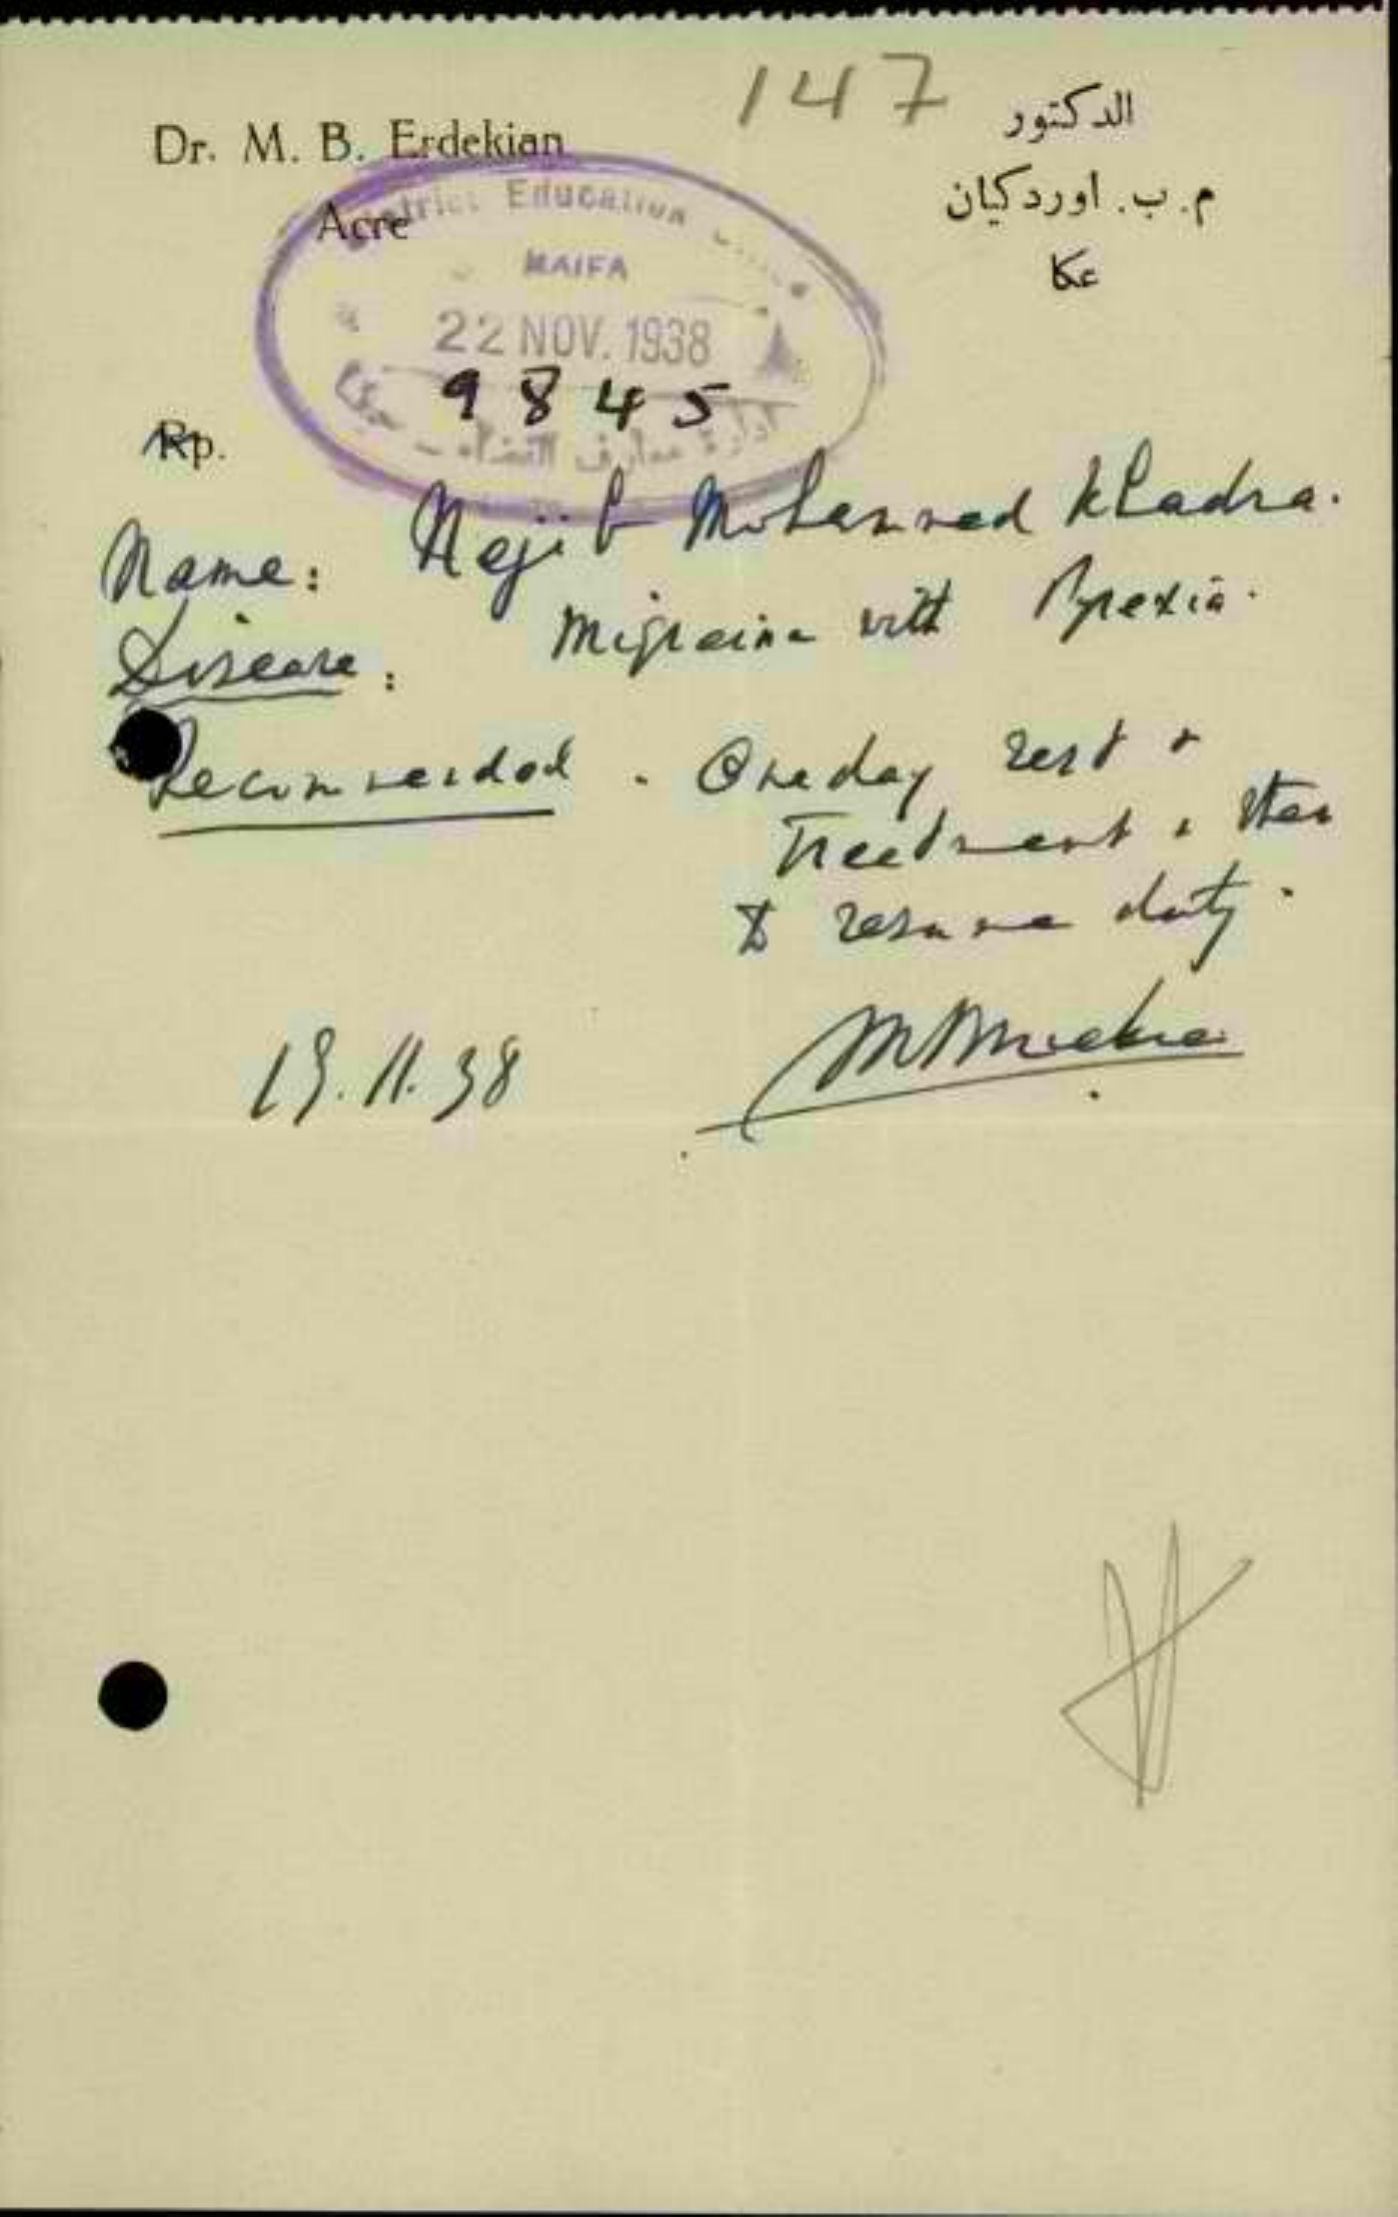 147
Dr. M. B. Erdekian
Acre
الدكتور
م. ب. اوردكيان
عكا
District Education
HAIFA
22 NOV. 1938
9845
ادارة معارف القضاء
Rp.
Name: Nejib Mohammed Khadra.
Disease: Migraine with Pyrexia.
Recommended. One day rest &
Treatment & then
to resume duty.
19.11.38